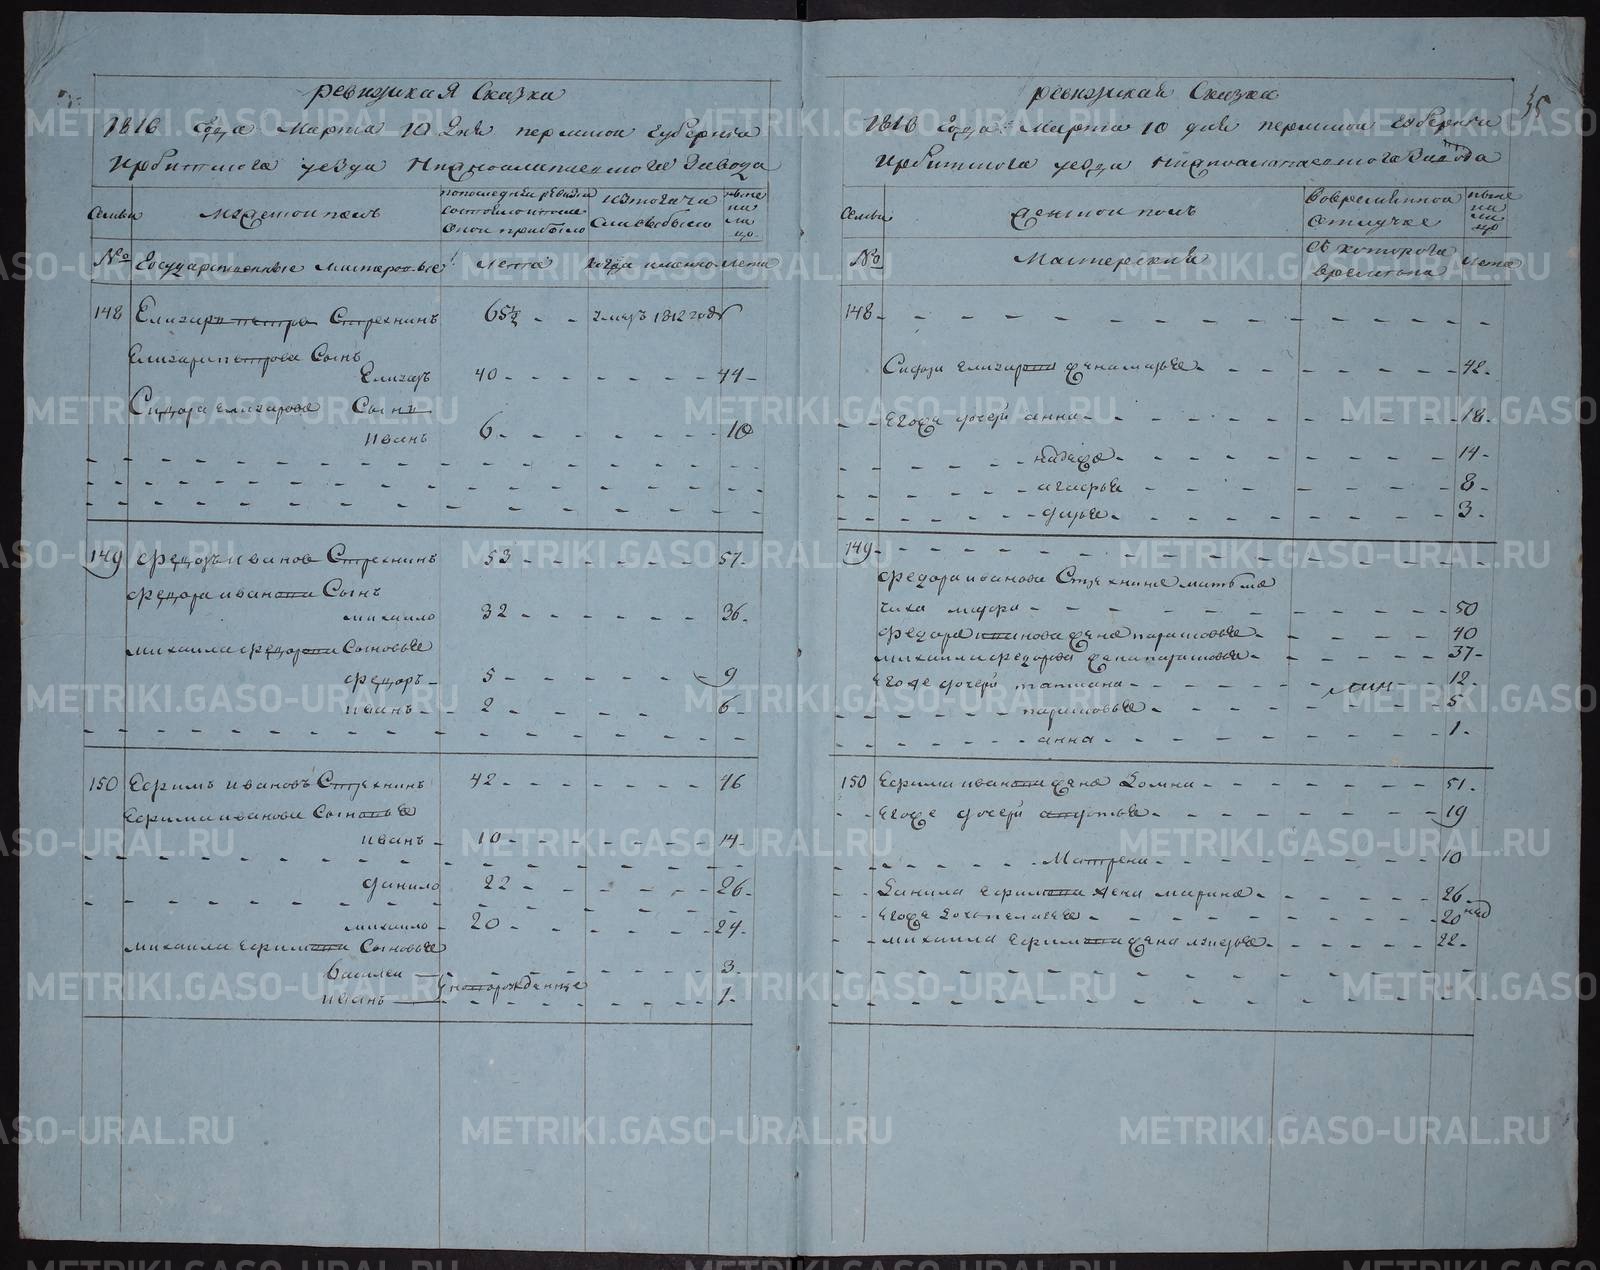 ревижская Сказка
1816 Года Марта 10 Дня пермской губернии
Ирбитского уезда Нижноалапаевского Завода
Семьи
мужеской полъ
по последней ревизии состояло и после оной прибыло
из того числа выбыло
ныне на лицо
№
Государственные мастеровые
Лета
когда именно
Лета
148 Елизаръ петровъ Стрехнинъ 65½ - - умеръ 1812 году
Елизара петрова Сынъ
40 - - - - - - 44 -
Сидора елизарова Сынъ
иванъ 6 - - - - - - 10
149 Федоръ иванов Стрехнинъ 53 - - - - - 57 -
Федора иванова Сынъ
михаило 32 - - - - - - 36 -
михаила федорова Сыновья
федоръ - 5 - - - - - 9
иванъ - - 2 - - - - - 6 -
150 Ефимъ ивановъ Стрехнинъ 42 - - - - - - 46
Ефима иванова Сыновья
иванъ - 10 - - - - - - 14 -
данило 22 - - - - - - 26 -
михаило - 20 - - - - - - 24 -
михаила Ефимова Сыновья
василеи - - - - - - 3 -
иванъ новорожденные - - - - 1 -
35
ревижская Сказка
1816 Года Марта 10 дня пермской губернии
Ирбитского уезда Нижноалапаевского Завода
Семьи
женской полъ
Во временной отлучке
ныне на лицо
№
Мастерския
съ которого времени
Лета
148 - - - - - - - - - -
Сидора Елизарова жена марья - - - - - - 42 -
- - Его же дочери анна - - - - - - 18 -
надежа - - - - - - 14 -
агафья - - - - - - 8 -
дарья - - - - - - 3 -
149 - - - - - - - - - -
федора иванова Стрехнина
- - - - - - 50
федора иванова жена парасковья - - - - 40
михаила федорова жена парасковья - - - - - 37 -
Его же дочери татиана - - - - - - 12 -
парасковья - - - - - - 5
анна - - - - - - 1 -
150 Ефима иванова жена Домна - - - - - - 51 -
- - Его же дочери - - - - - - 19
Матрена - - - - - - 10
- - Данила Ефимова жена марина - - - - - - 26 -
- - Его же дочь пелагея - - - - - - 20 нед
- - михаила Ефимова жена - - - - - - 22 -
METRIKI.GASO-URAL.RU